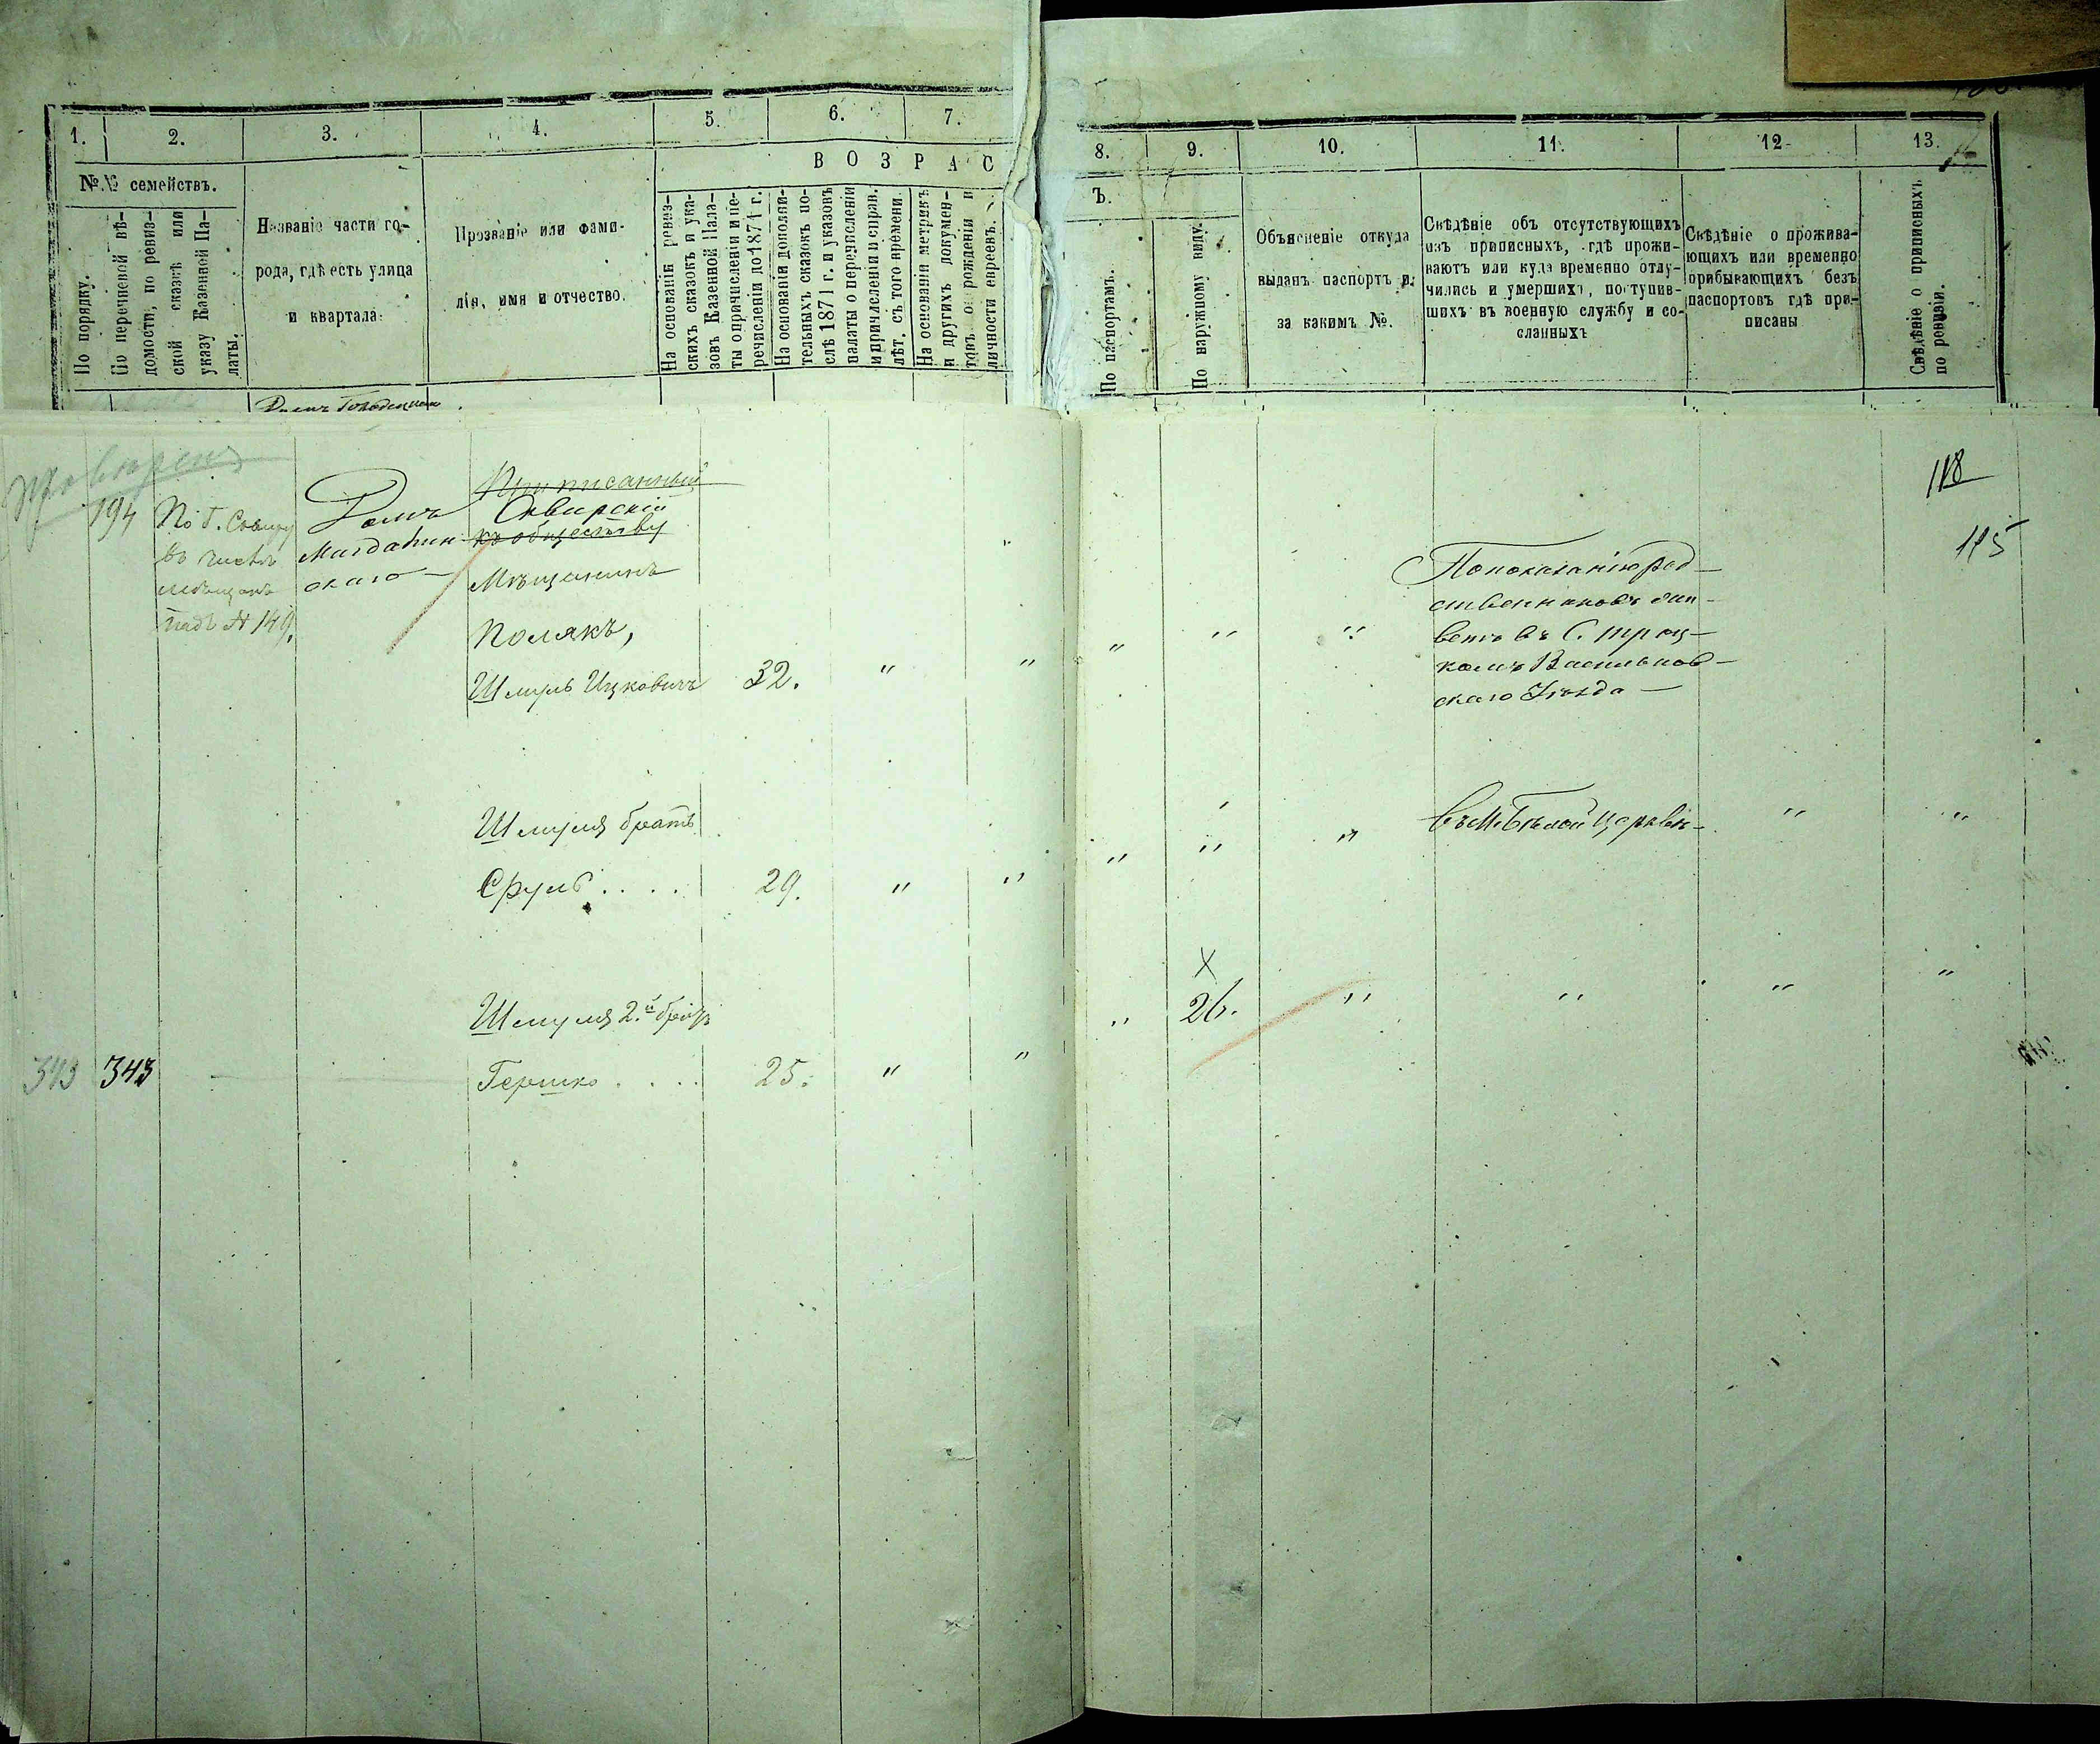 1. 2. 3. 4. 5. 6. 7.
В О З Р А С
№№ семействъ.
По порядку.
По перечневой вѣ-
домости, по ревиз-
ской сказкѣ или
указу Казенной Па-
латы.
Названіе части го-
рода, гдѣ есть улица
и квартала.
Прозваніе или фами-
лія, имя и отчество.
На основаніи ревиз-
скихъ сказокъ и ука-
зовъ Казенной Пала-
ты о причисленіи и пе-
речисленіи до 1871 г.
На основаніи дополни-
тельныхъ сказокъ по-
слѣ 1871 г. и указовъ
палаты о перечисленіи
и причисленіи и справ.
лѣт. съ того времени.
На основаніи метрикъ
и другихъ докумен-
товъ о рожденіи и
личности евреевъ.
8. 9. 10. 11. 12. 13.
Ъ.
По паспортамъ.
По наружному виду.
Объясненіе откуда
выданъ паспортъ и
за какимъ №.
Свѣдѣніе объ отсутствующихъ
изъ приписныхъ, гдѣ прожи-
ваютъ или куда временно отлу-
чились и умершихъ, поступив-
шихъ въ военную службу и со-
сланныхъ
Свѣдѣніе о прожива-
ющихъ или временно
прибывающихъ безъ
паспортовъ гдѣ при-
писаны
Свѣдѣніе о приписныхъ
по ревизіи.
Домъ
194
По Г. Сквиру
въ числѣ
мѣщанъ
подъ № 149.
Домъ
скаго
Приписанный
Сквирскій
къ обществу
Мѣщанинъ
Полякъ,
Шмуль Ицковичъ 32. " " " " "
По показанію род-
ственниковъ жи-
ветъ въ С. Троц-
комъ Васильков-
скаго Уѣзда
118
115
Шмуля братъ
Сруль .... 29. " " " " " въ М. Бѣлой Церкви " "
Шмуля 2.й братъ
343 343 Гершко .... 25. " " " X 26. " " " "